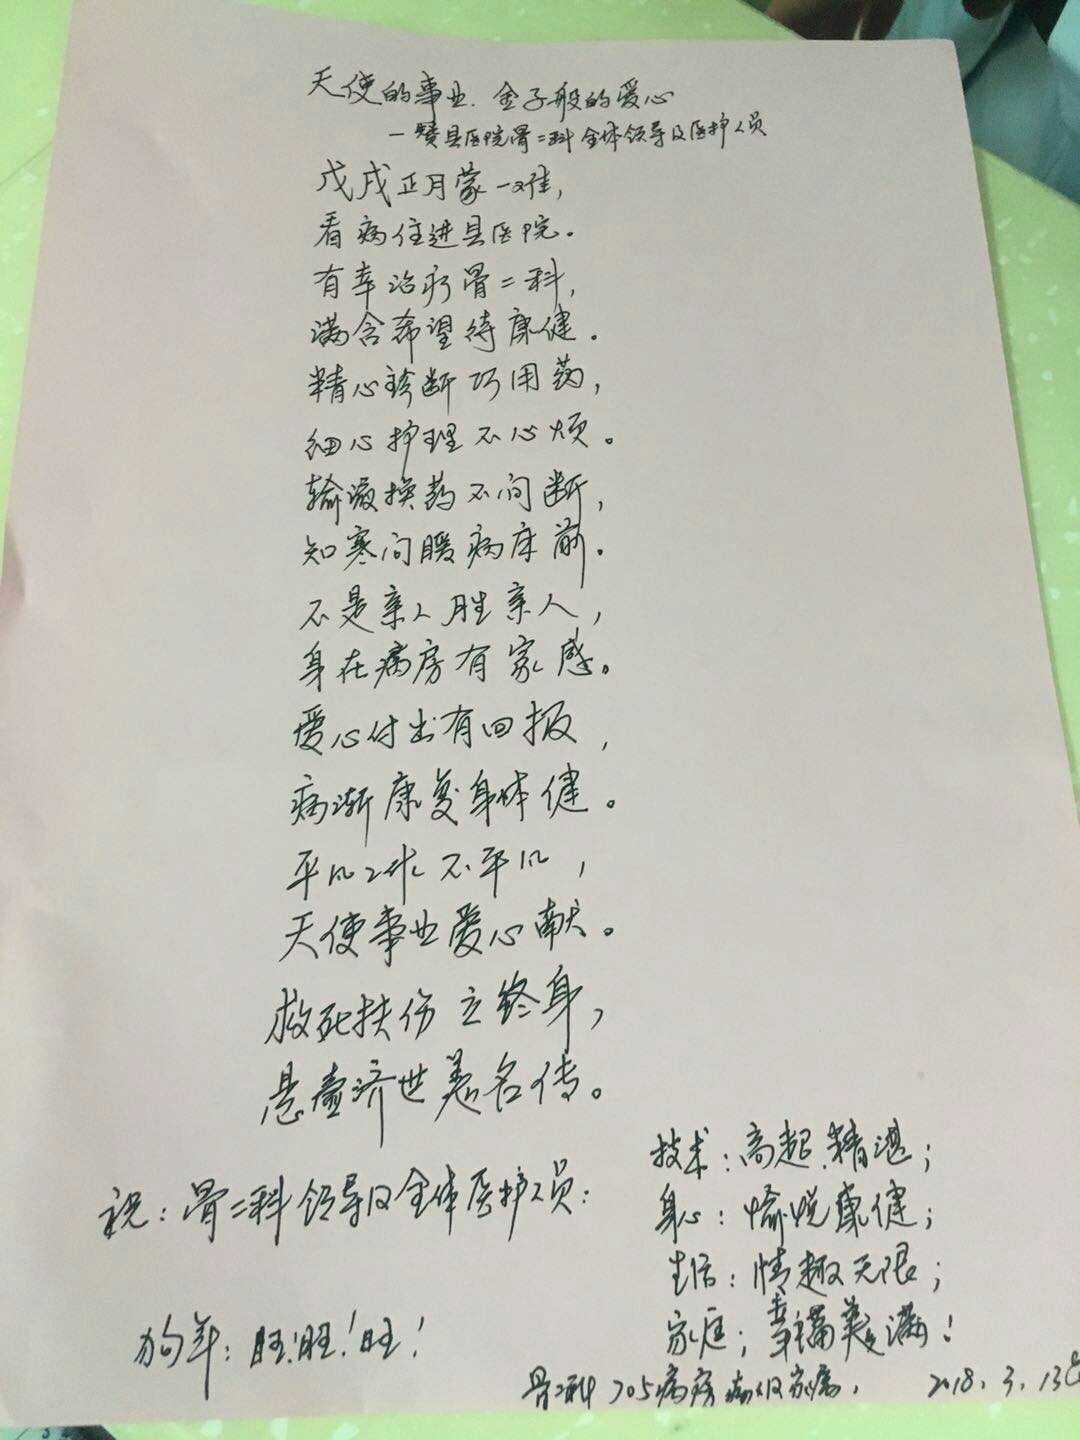 天使的事业、金子般的爱心
—赞县医院骨二科全体领导及医护人员
戊戌正月蒙一难，
看病住进县医院。
有幸治疗骨二科，
满含希望待康健。
精心诊断巧用药，
细心护理不心烦。
输液换药不间断，
知寒问暖病床前。
不是亲人胜亲人，
身在病房有家感。
爱心付出有回报，
病渐康复身体健。
平凡工作不平凡，
天使事业爱心献。
救死扶伤立终身，
悬壶济世美名传。
祝：骨二科领导及全体医护人员：
技术：高超、精湛；
身心：愉悦康健；
生活：情趣无限；
家庭；幸福美满！
狗年：旺！旺！旺！
骨二科705病房病人及家属，
2018.3.13日